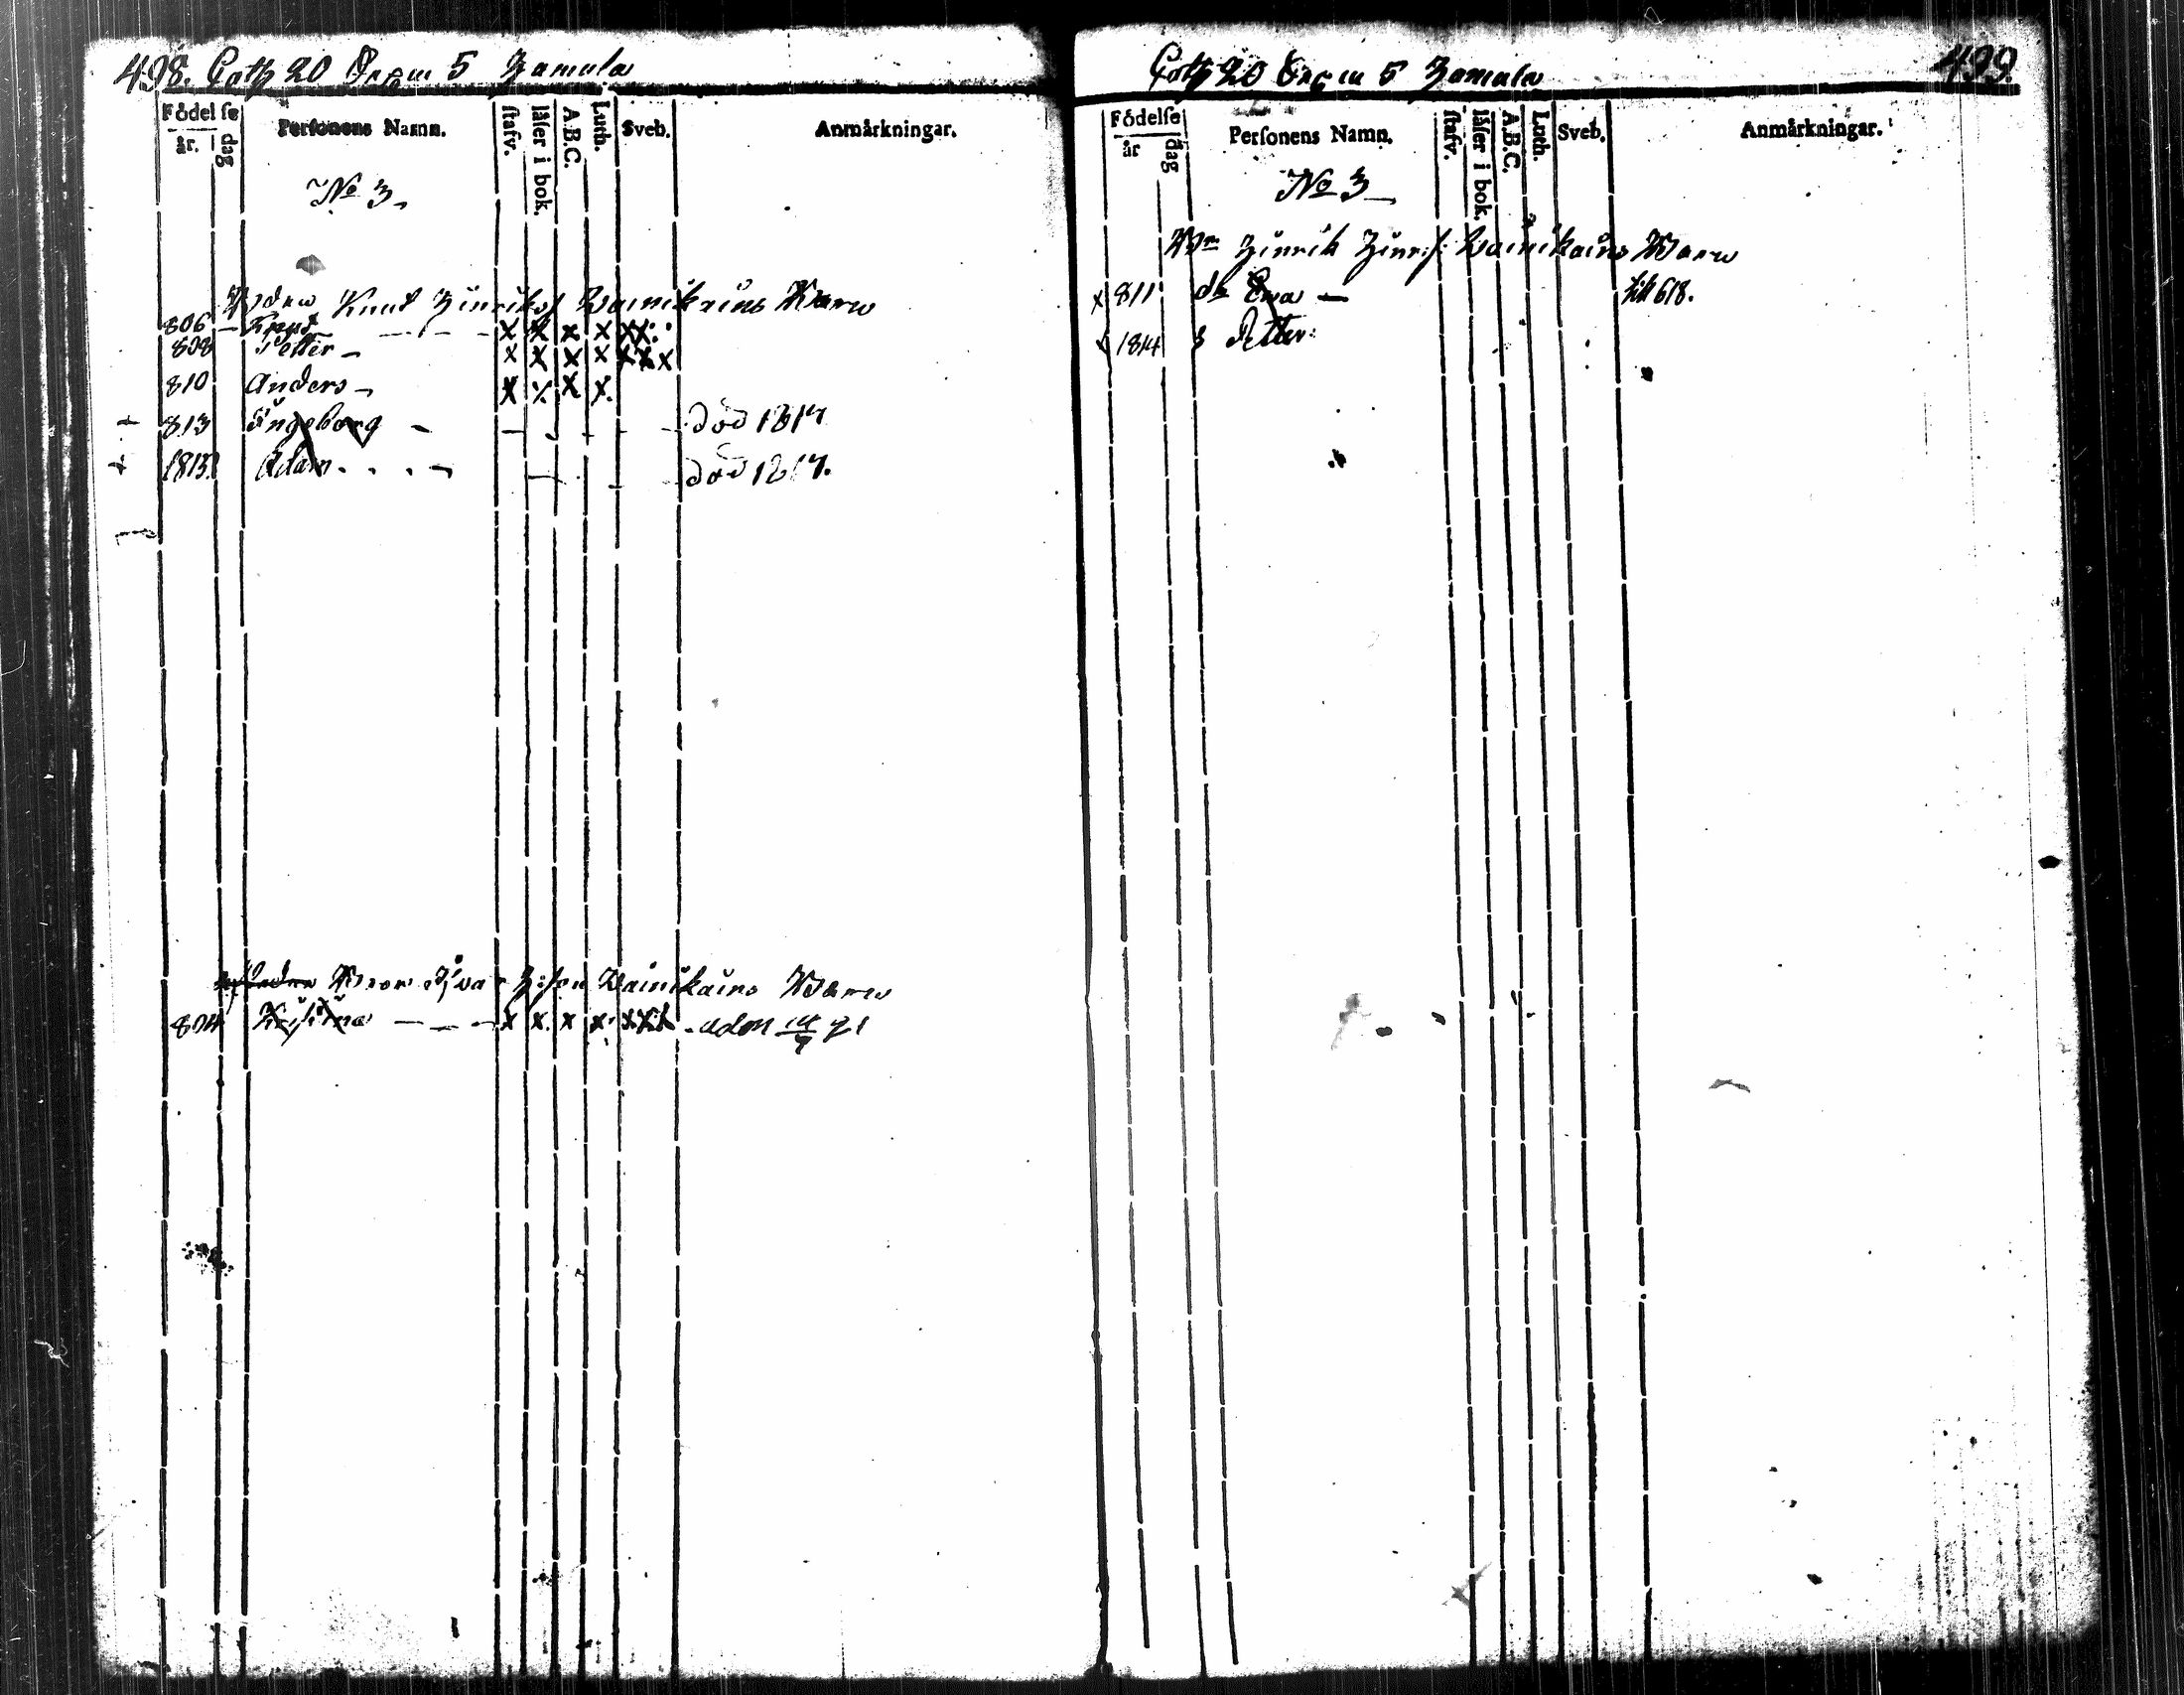 498. Goth 20 5 Hamula
Födelse
år. dag
Personens Namn.
stafv.
läser i bok.
A.B.C.
Luth.
Sveb.
Anmärkningar.
No 3
Knut Hinrikss Wainikains Barn
806 Knut - x x x x xx
808 Petter - x x x x xxx
810 Anders - x x x x
813 Ingeborg - död 1817
1815 Adam - död 1817.
Ivar Wainikains Barn
804 x x x x xxx
Goth 20 5 Hamula 499.
Födelse
år dag
Personens Namn.
stafv.
läser i bok.
A.B.C.
Luth.
Sveb.
Anmärkningar.
No 3
Bn Hinrik Hinrs: Wainikains Barn
x 811 dr Ewa - 618.
1814 s Petter: